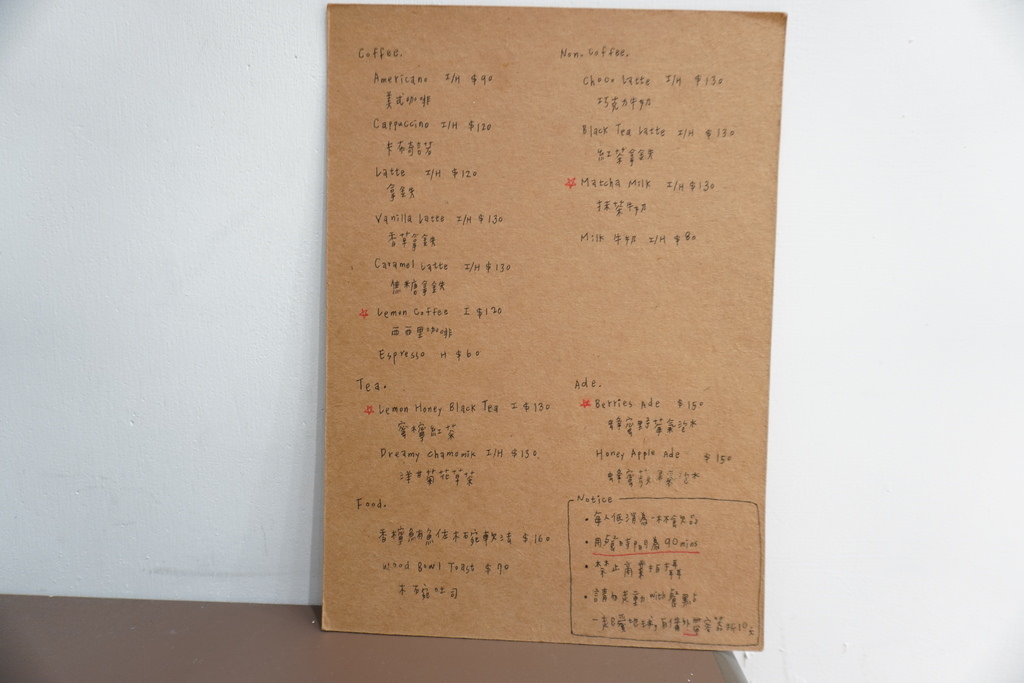 Coffee.
Americano I/H $90
美式咖啡
Cappuccino I/H $120
卡布奇諾
Latte I/H $120
拿鐵
Vanilla Latte I/H $130
香草拿鐵
Caramel Latte I/H $130
焦糖拿鐵
Lemon Coffee I $120
西西里咖啡
Espresso H $60
Non. Coffee.
Choco Latte I/H $130
巧克力牛奶
Black Tea Latte I/H $130
紅茶拿鐵
Matcha Milk I/H $130
抹茶牛奶
Milk 牛奶 I/H $80
Tea.
Lemon Honey Black Tea I $130
蜜檸紅茶
Dreamy Chamomile I/H $130
洋甘菊花草茶
Ade.
Berries Ade $150
蜂蜜野莓氣泡水
Honey Apple Ade $150
蜂蜜蘋果氣泡水
Food.
香檸鮪魚佐木碗軟法 $160
Wood Bowl Toast $70
木碗吐司
Notice
• 每人低消為一杯飲品
• 用餐時間為90mins
• 禁止商業拍攝
• 請勿